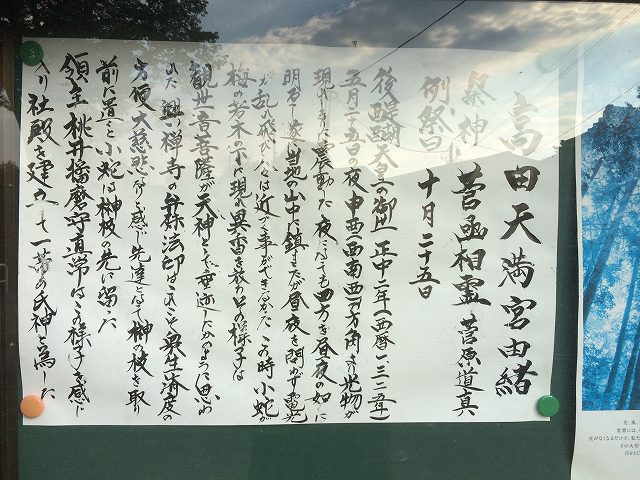 高田天満宮由緒
祭神 菅函相霊 菅原道真
例祭日 十月二十五日
後醍醐天皇の御世 正中二年(西暦一三二五年)
五月二十五日の夜申酉(西南西)の方角より光物が
現れ 震動した 夜にても四方を昼夜の如くに
明るし 当地の山中に鎮まったが昼夜を問わず電光
が乱れ飛び人々は近く事ができなかった この時小蛇が
梅の若木の下に現れ異香を放つその様子は
観世音菩薩が天神として垂迹したかのように思われ
また 興禅寺の弁弥法印はこれこそ衆生済度の
方便大慈悲なりと感じ先達して榊の枝を取り
前に置くと小蛇は榊枝の先に留った
領主桃井播磨守直常はこの様子を感じ
入り社殿を建立して一帯の氏神と為した